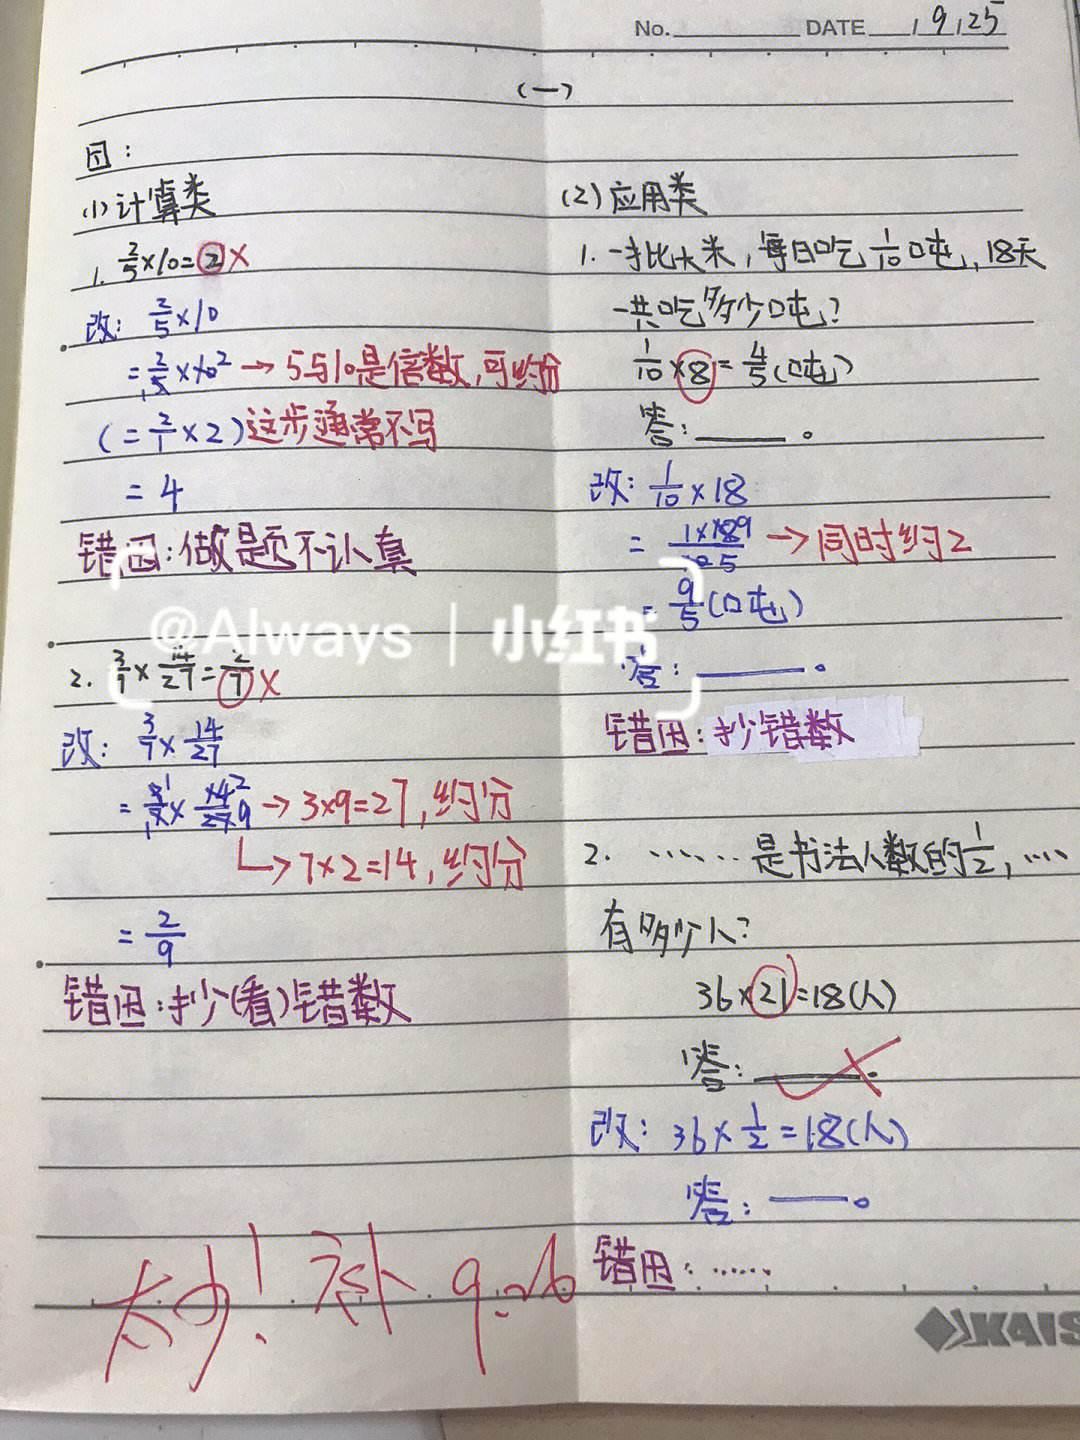 No. DATE 9,25
(一)
(1)计算类
1. 2/5×10=2×
改: 2/5×10
=2/5×10 2 → 5与10是倍数,可约分
(=2/1×2)这步通常不写
=4
错因:做题不认真
2. 3/7×14/27=2/7×
改: 3/7×14/27
=3/7×14/27 1 1 2 9 → 3×9=27,约分
→ 7×2=14,约分
=2/9
错因:抄(看)错数
(2)应用类
1. 一批大米,每日吃1/10吨,18天
一共吃多少吨?
1/10×8=4/5(吨)
答:____。
改: 1/10×18
=1×18 9/10 5 → 同时约2
=9/5(吨)
答:____。
错因:抄错数
2. ……是书法人数的1/2,…
有多少人?
36×21=18(人)
答:____.
改: 36×1/2=18(人)
答:____。
错因:……
太少!补 9.26
@Always | 小红书
KAIS